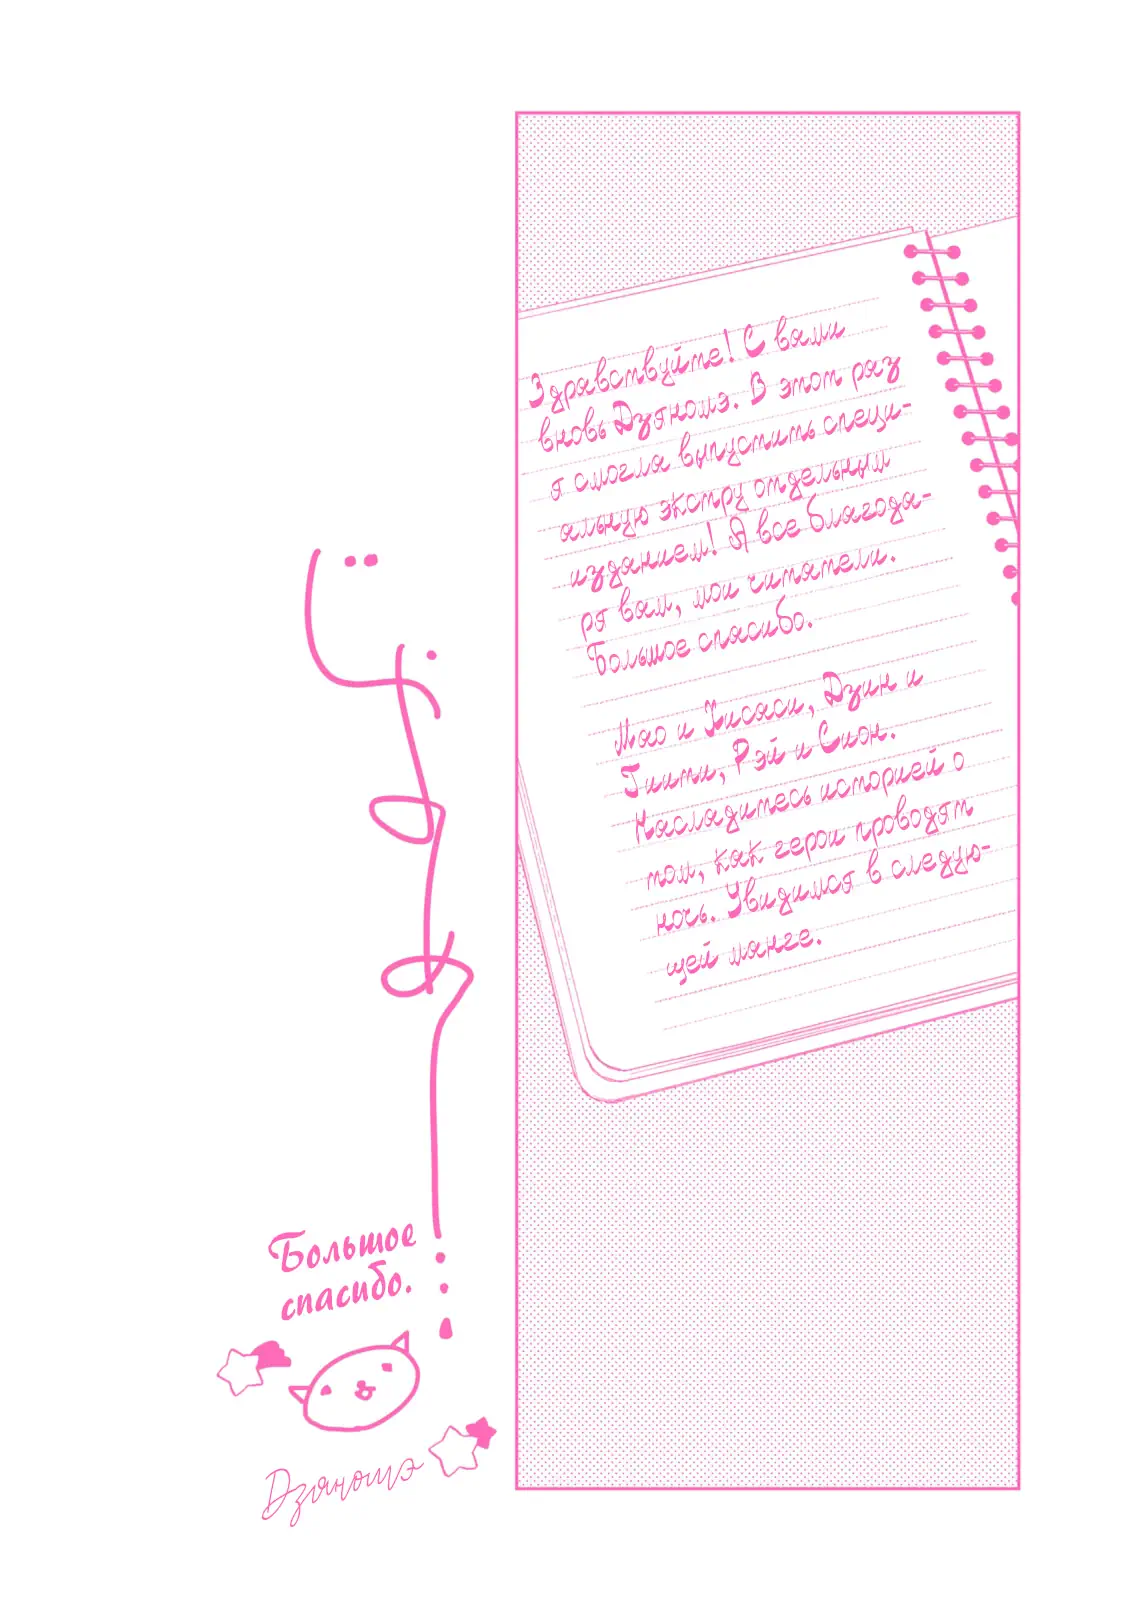 Здравствуйте! С вами
вновь Дзяношэ. В этот раз
я смогла выпустить специ-
альную экстру отдельным
изданием! Я все благода-
ря вам, мои читатели.
Большое спасибо.
Мао и Хисаси, Дзин и
Тиити, Рэй и Сион.
Насладитесь историей о
том, как герои проводят
ночь. Увидимся в следую-
щей манге.
Большое
спасибо.
Дзяношэ